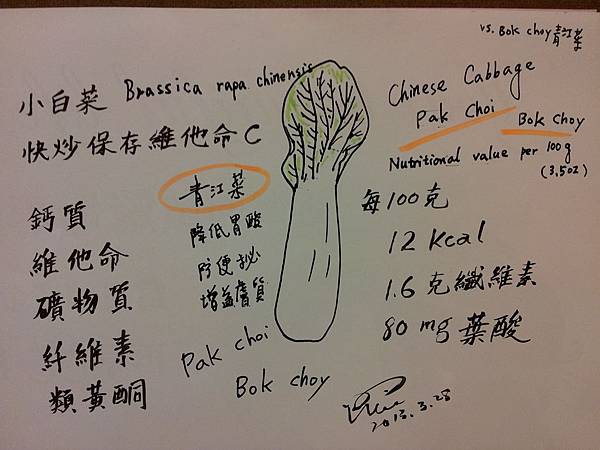 vs. Bok choy 青江菜
小白菜 Brassica rapa chinensis
快炒保存維他命C
鈣質
維他命
礦物質
纤維素
類黃酮
青江菜
降低胃酸
防便祕
增益膚質
Pak choi
Bok choy
Chinese Cabbage
Pak Choi Bok Choy
Nutritional value per 100g
(3.5oz)
每100克
12 Kcal
1.6克纖維素
80 mg葉酸
2013.3.28